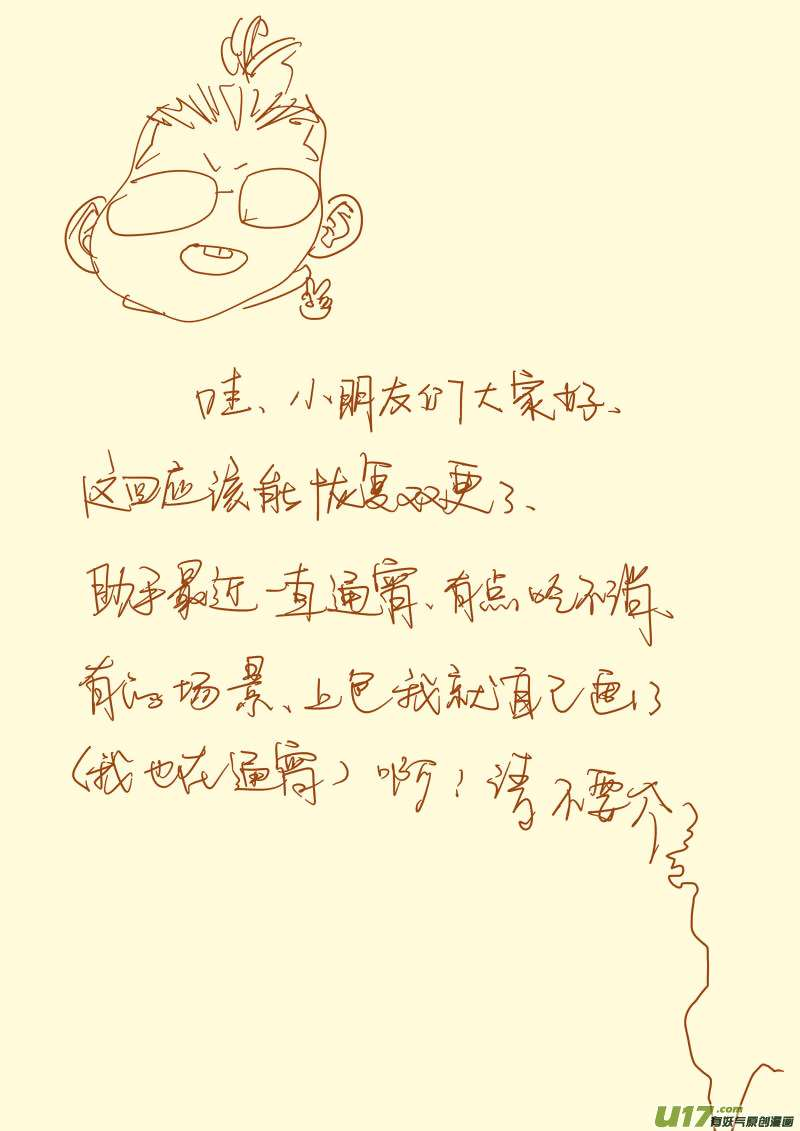 哇、小朋友们大家好、
这回应该能恢复双更了、
助手最近一直通宵、有点吃不消、
有的场景、上色我就自己画了
（我也在通宵）啊！请不要介
U17.com
有妖气原创漫画